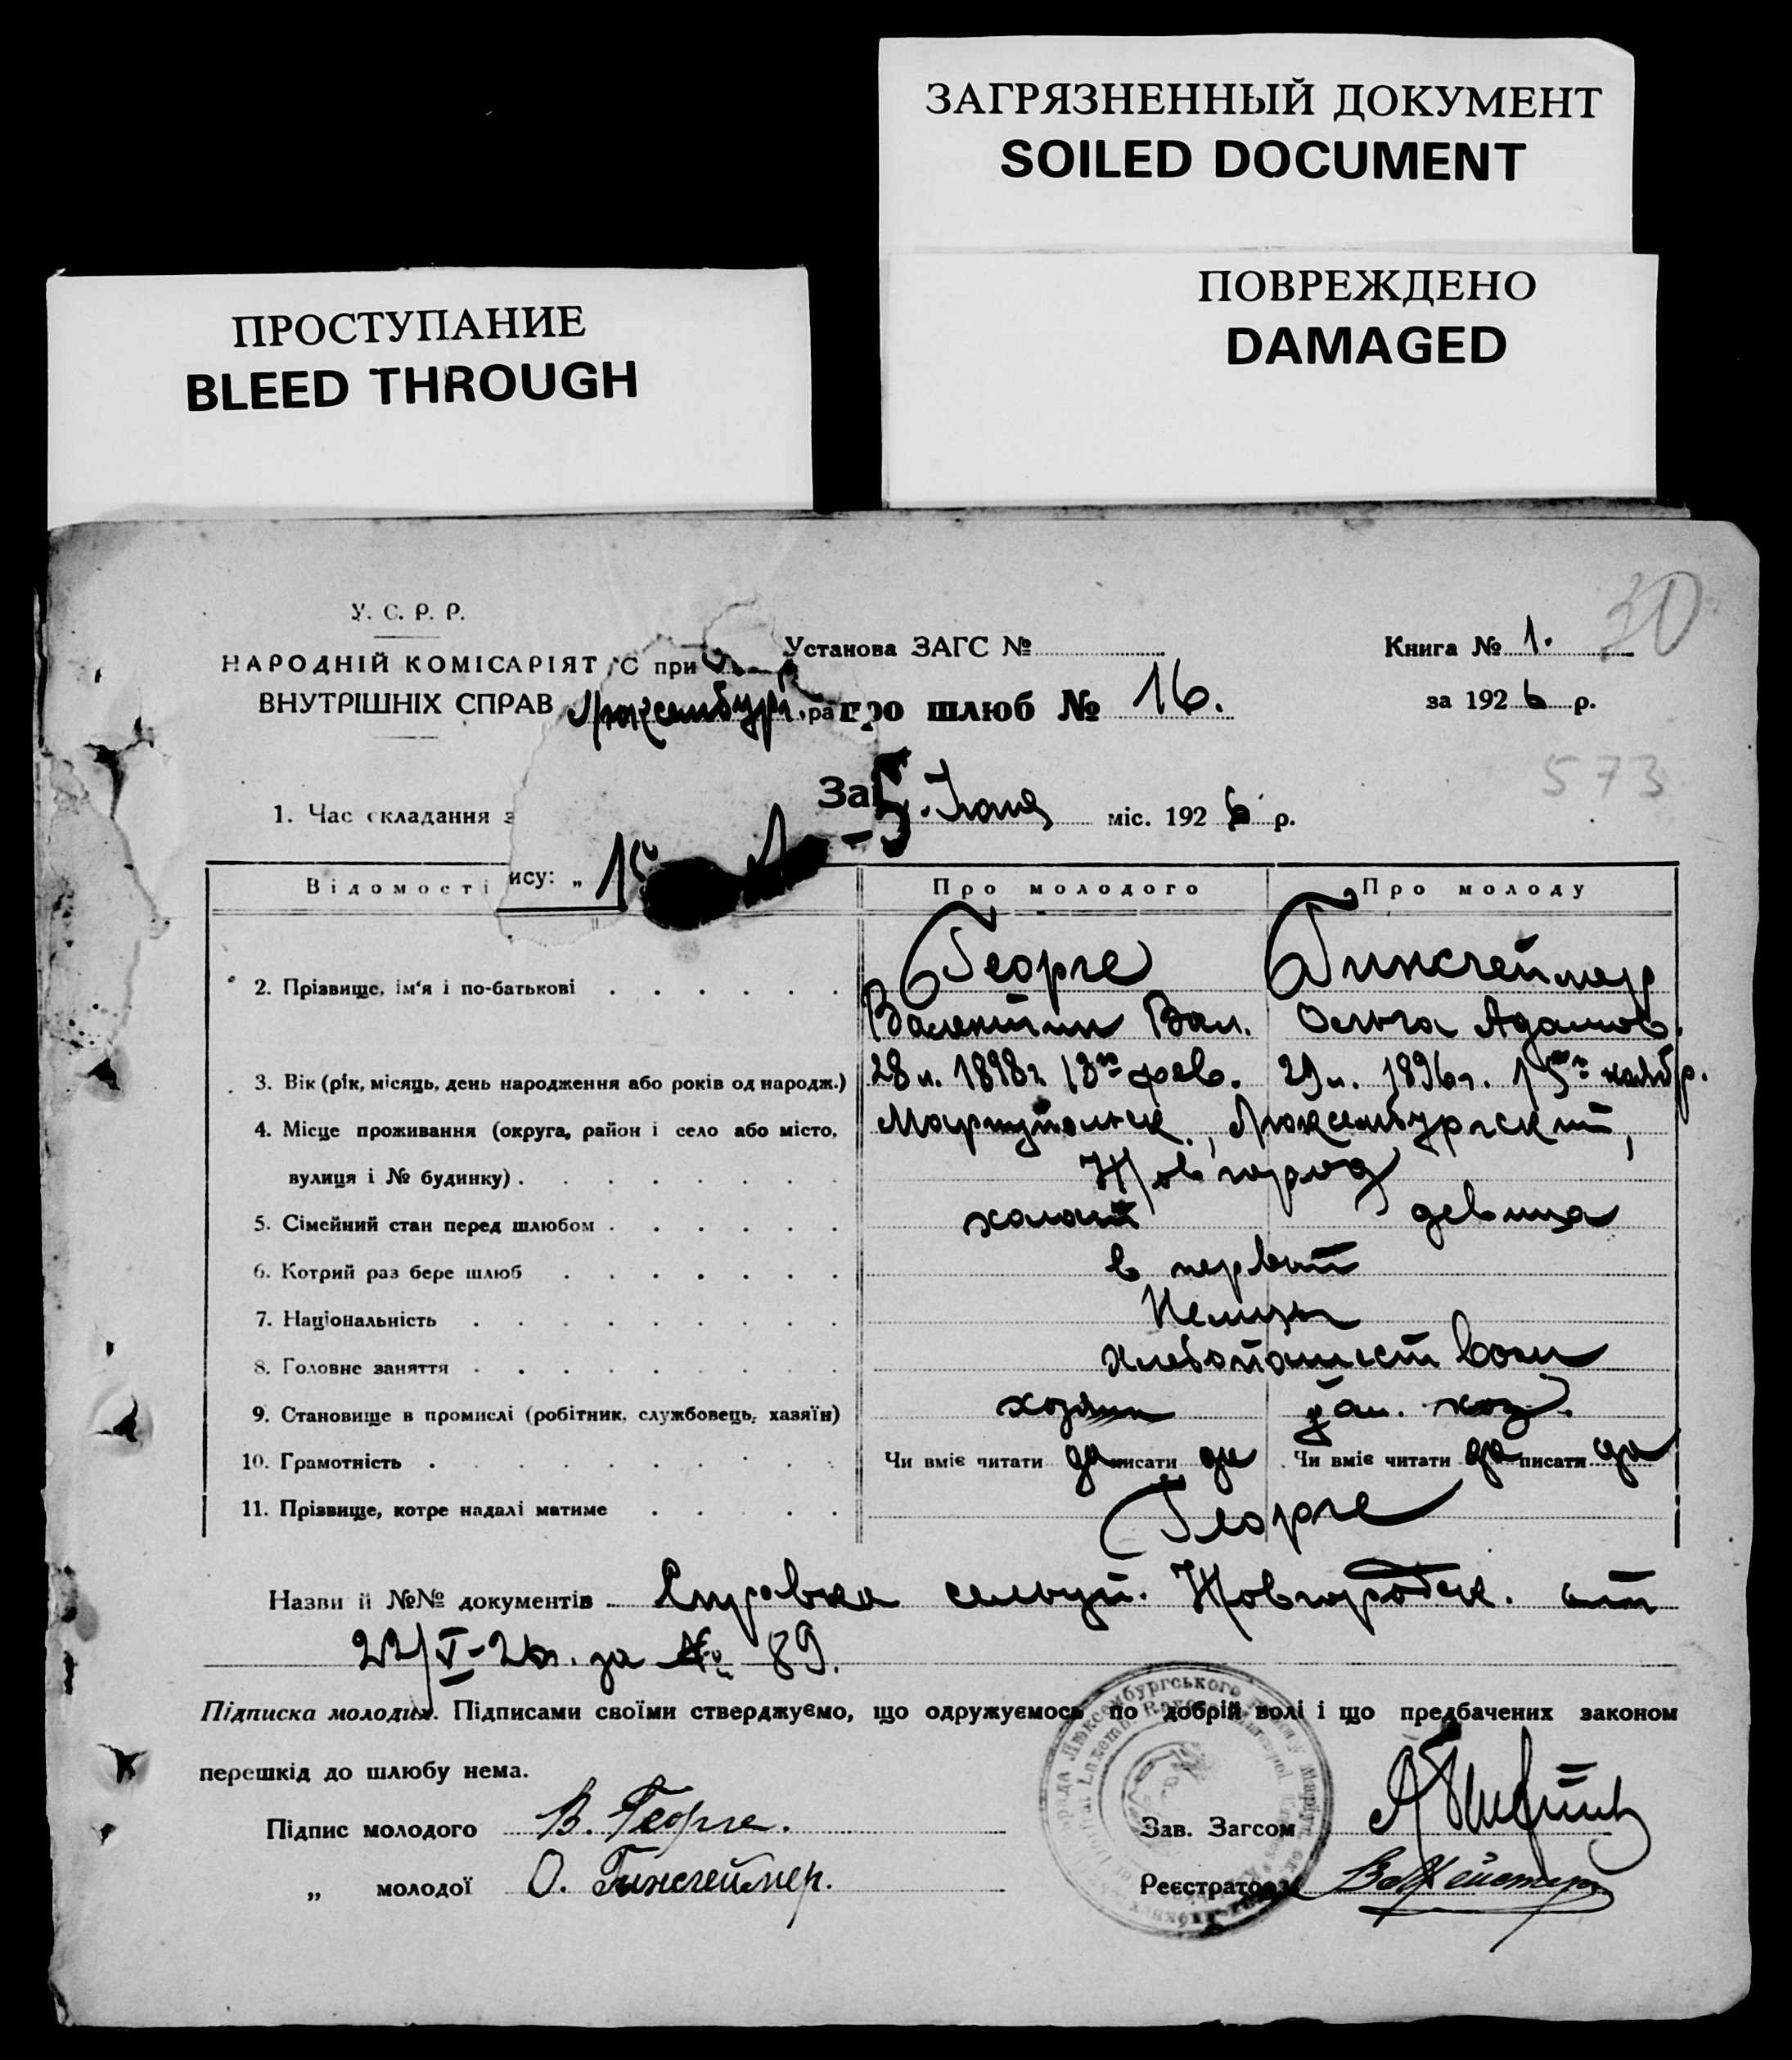 ЗАГРЯЗНЕННЫЙ ДОКУМЕНТ
SOILED DOCUMENT
ПОВРЕЖДЕНО
DAMAGED
ПРОСТУПАНИЕ
BLEED THROUGH
30
У. С. Р. Р.
НАРОДНІЙ КОМІСАРІЯТ
ВНУТРІШНІХ СПРАВ
С при
Люксембург. ра
Установа ЗАГС №
Книга № 1.
про шлюб № 16.
за 1926 р.
573
За
1. Час складання з
ису: „ 15 Июня міс. 1926 р.
Відомості
Про молодого
Про молоду
2. Прізвище, ім'я і по-батькові
Георге Гинсгеймер
Валентин Вал. Ольга Адамов.
3. Вік (рік, місяць, день народження або років од народж.) 28 л. 1898 г. 13го фев. 29 л. 1896 г. 15го нояб р.
4. Місце проживання (округа, район і село або місто, Мариупольск., Люксембургский,
вулиця і № будинку) Новгород
5. Сімейний стан перед шлюбом холост девица
6. Котрий раз бере шлюб в первый
7. Національність Немцы
8. Головне заняття хлебопашеством
9. Становище в промислі (робітник, службовець, хазяїн) хозяин дом. хоз.
10. Грамотність Чи вміє читати да писати да Чи вміє читати да писати да
11. Прізвище, котре надалі матиме Георге
Назви й №№ документів Справка сельуп. Новгородск. от
22/V-26 г. за № 89.
Підписка молодих. Підписами своїми стверджуємо, що одружуємось по добрій волі і що предбачених законом
перешкід до шлюбу нема.
Підпис молодого В. Георге.
Зав. Загсом
„ молодої О. Гинсгеймер.
Реєстратор